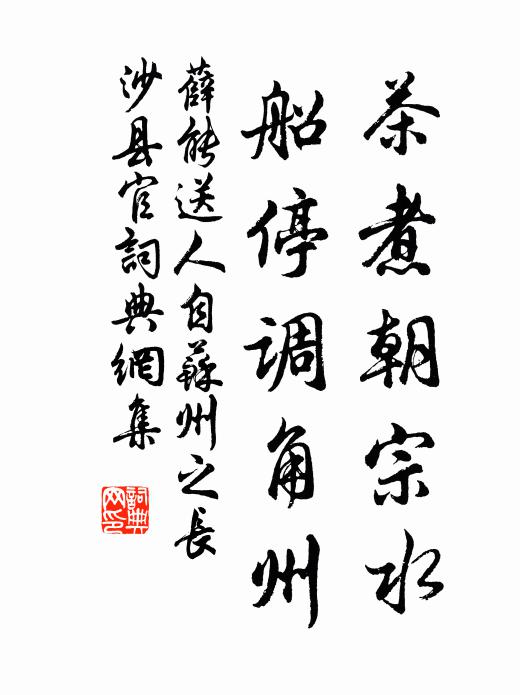 茶煮朝宗水
船停调角州
薛能送人自苏州之長
沙县官詞典網集
詞典網印